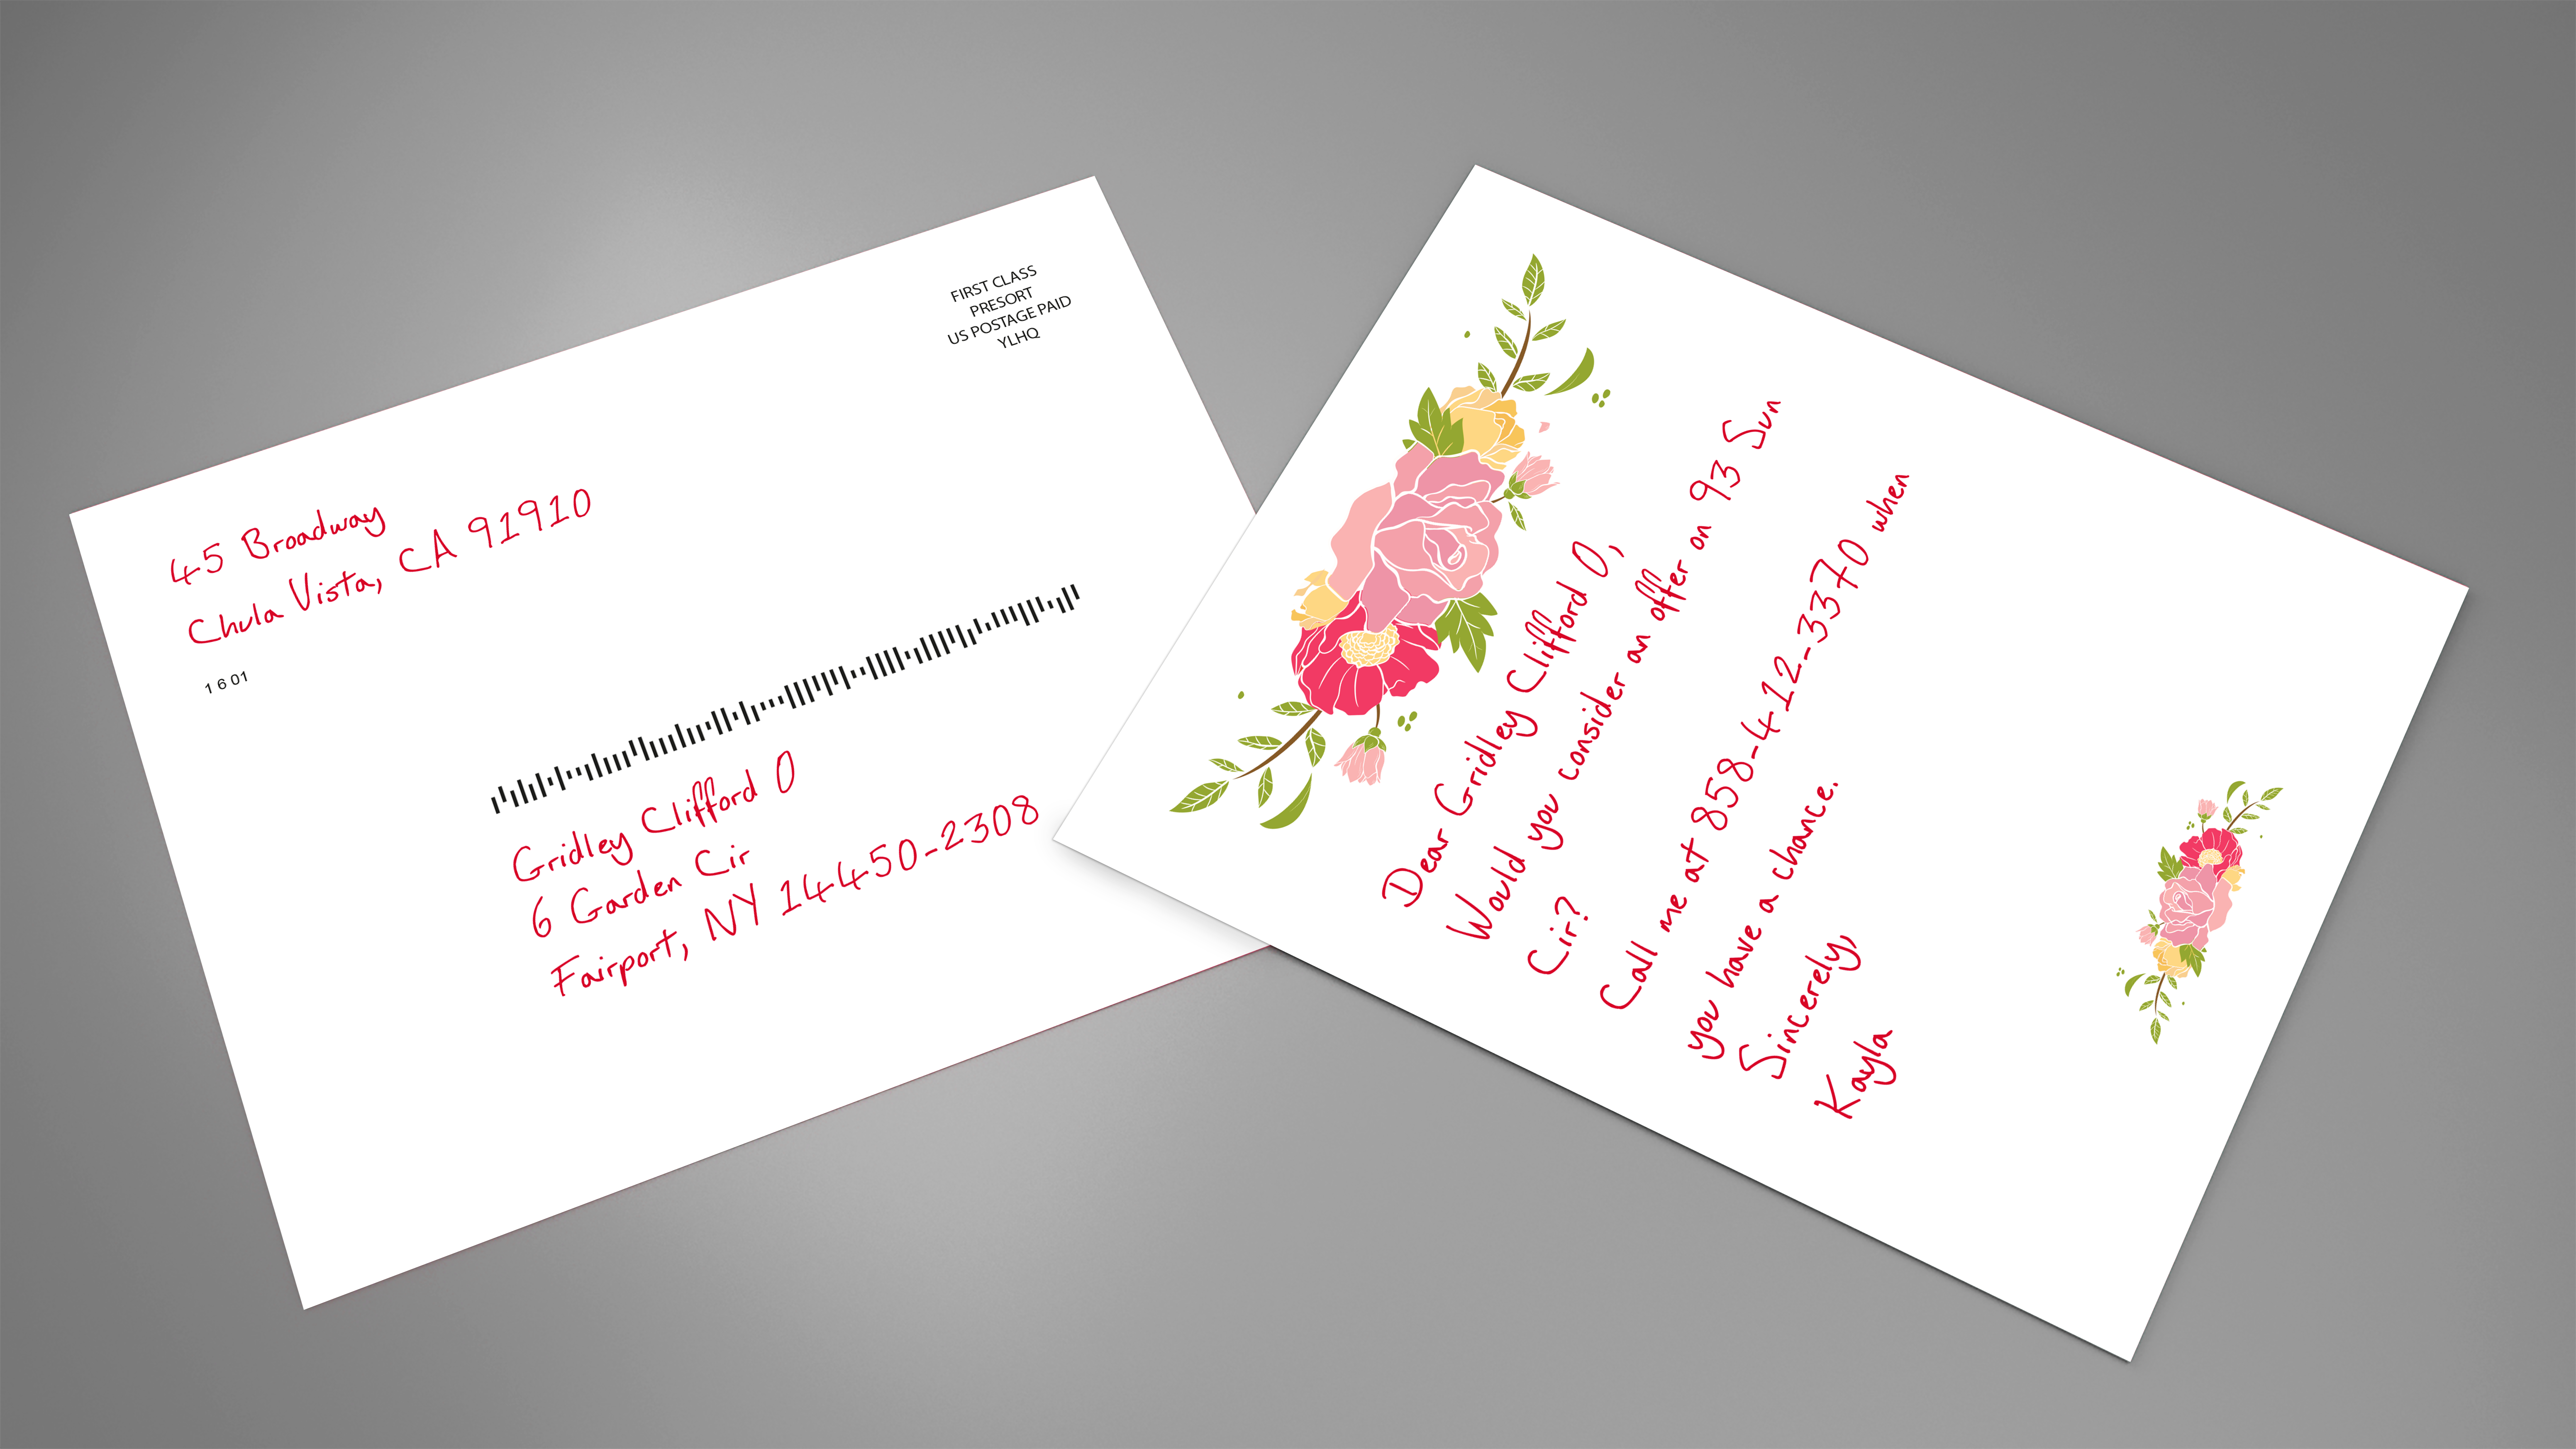 FIRST CLASS
PRESORT
US POSTAGE PAID
YLHQ
45 Broadway
Chula Vista, CA 91910
1 6 01
Gridley Clifford O
6 Garden Cir
Fairport, NY 14450-2308
Dear Gridley Clifford O,
Would you consider an offer on 93 Sun
Cir?
Call me at 858-412-3370 when
you have a chance.
Sincerely,
Kayla